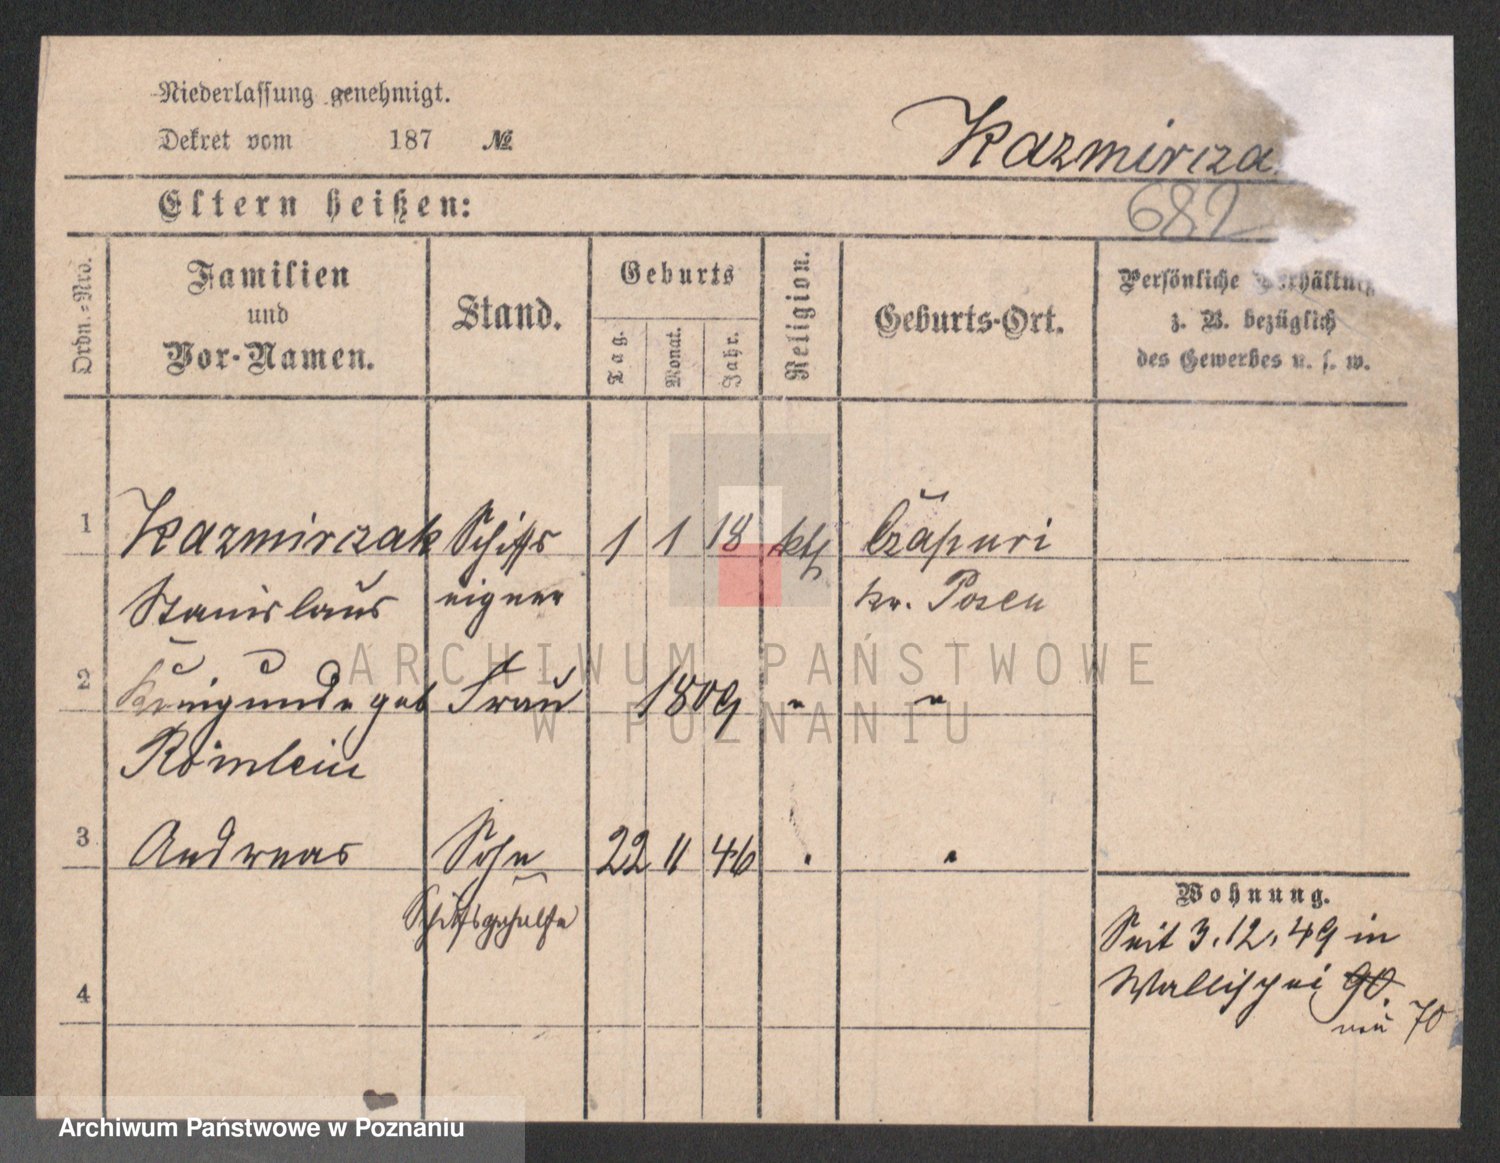 Niederlassung genehmigt.
Dekret vom 187 №
Kazmircza
682
Eltern heißen:
Ordn.-Nro.
Familien
und
Vor-Namen.
Stand.
Geburts
Tag.
Monat.
Jahr.
Religion.
Geburts-Ort.
Persönliche Verhältni
z. B. bezüglich
des Gewerbes u. s. w.
1 Kazmirczak Schiffs 1 1 18 kth Czapuri
Stanislaus eigner kr. Posen
2 Kunigunde geb Frau 1809 " "
Römlein
3 Andreas Sohn 22 11 46 " "
Schiffsgehülfe
4
Wohnung.
Seit 3.12.49 in
Wallischei 90.
neu 70
ARCHIWUM PAŃSTWOWE
W POZNANIU
Archiwum Państwowe w Poznaniu